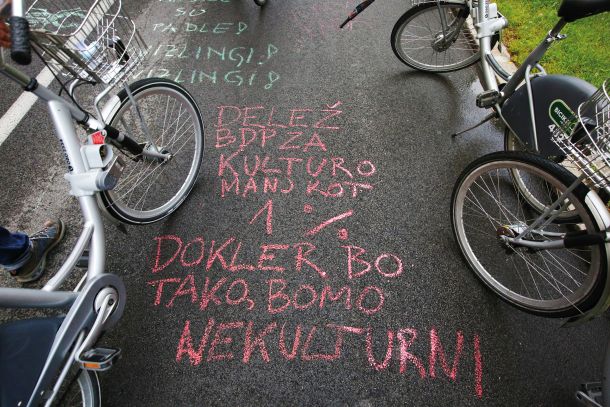 SO
PADLED
VIZLINGI!
VIZLINGI!
DELEŽ
BDP ZA
KULTURO
MANJ KOT
1 %
DOKLER BO
TAKO, BOMO
NEKULTURNI